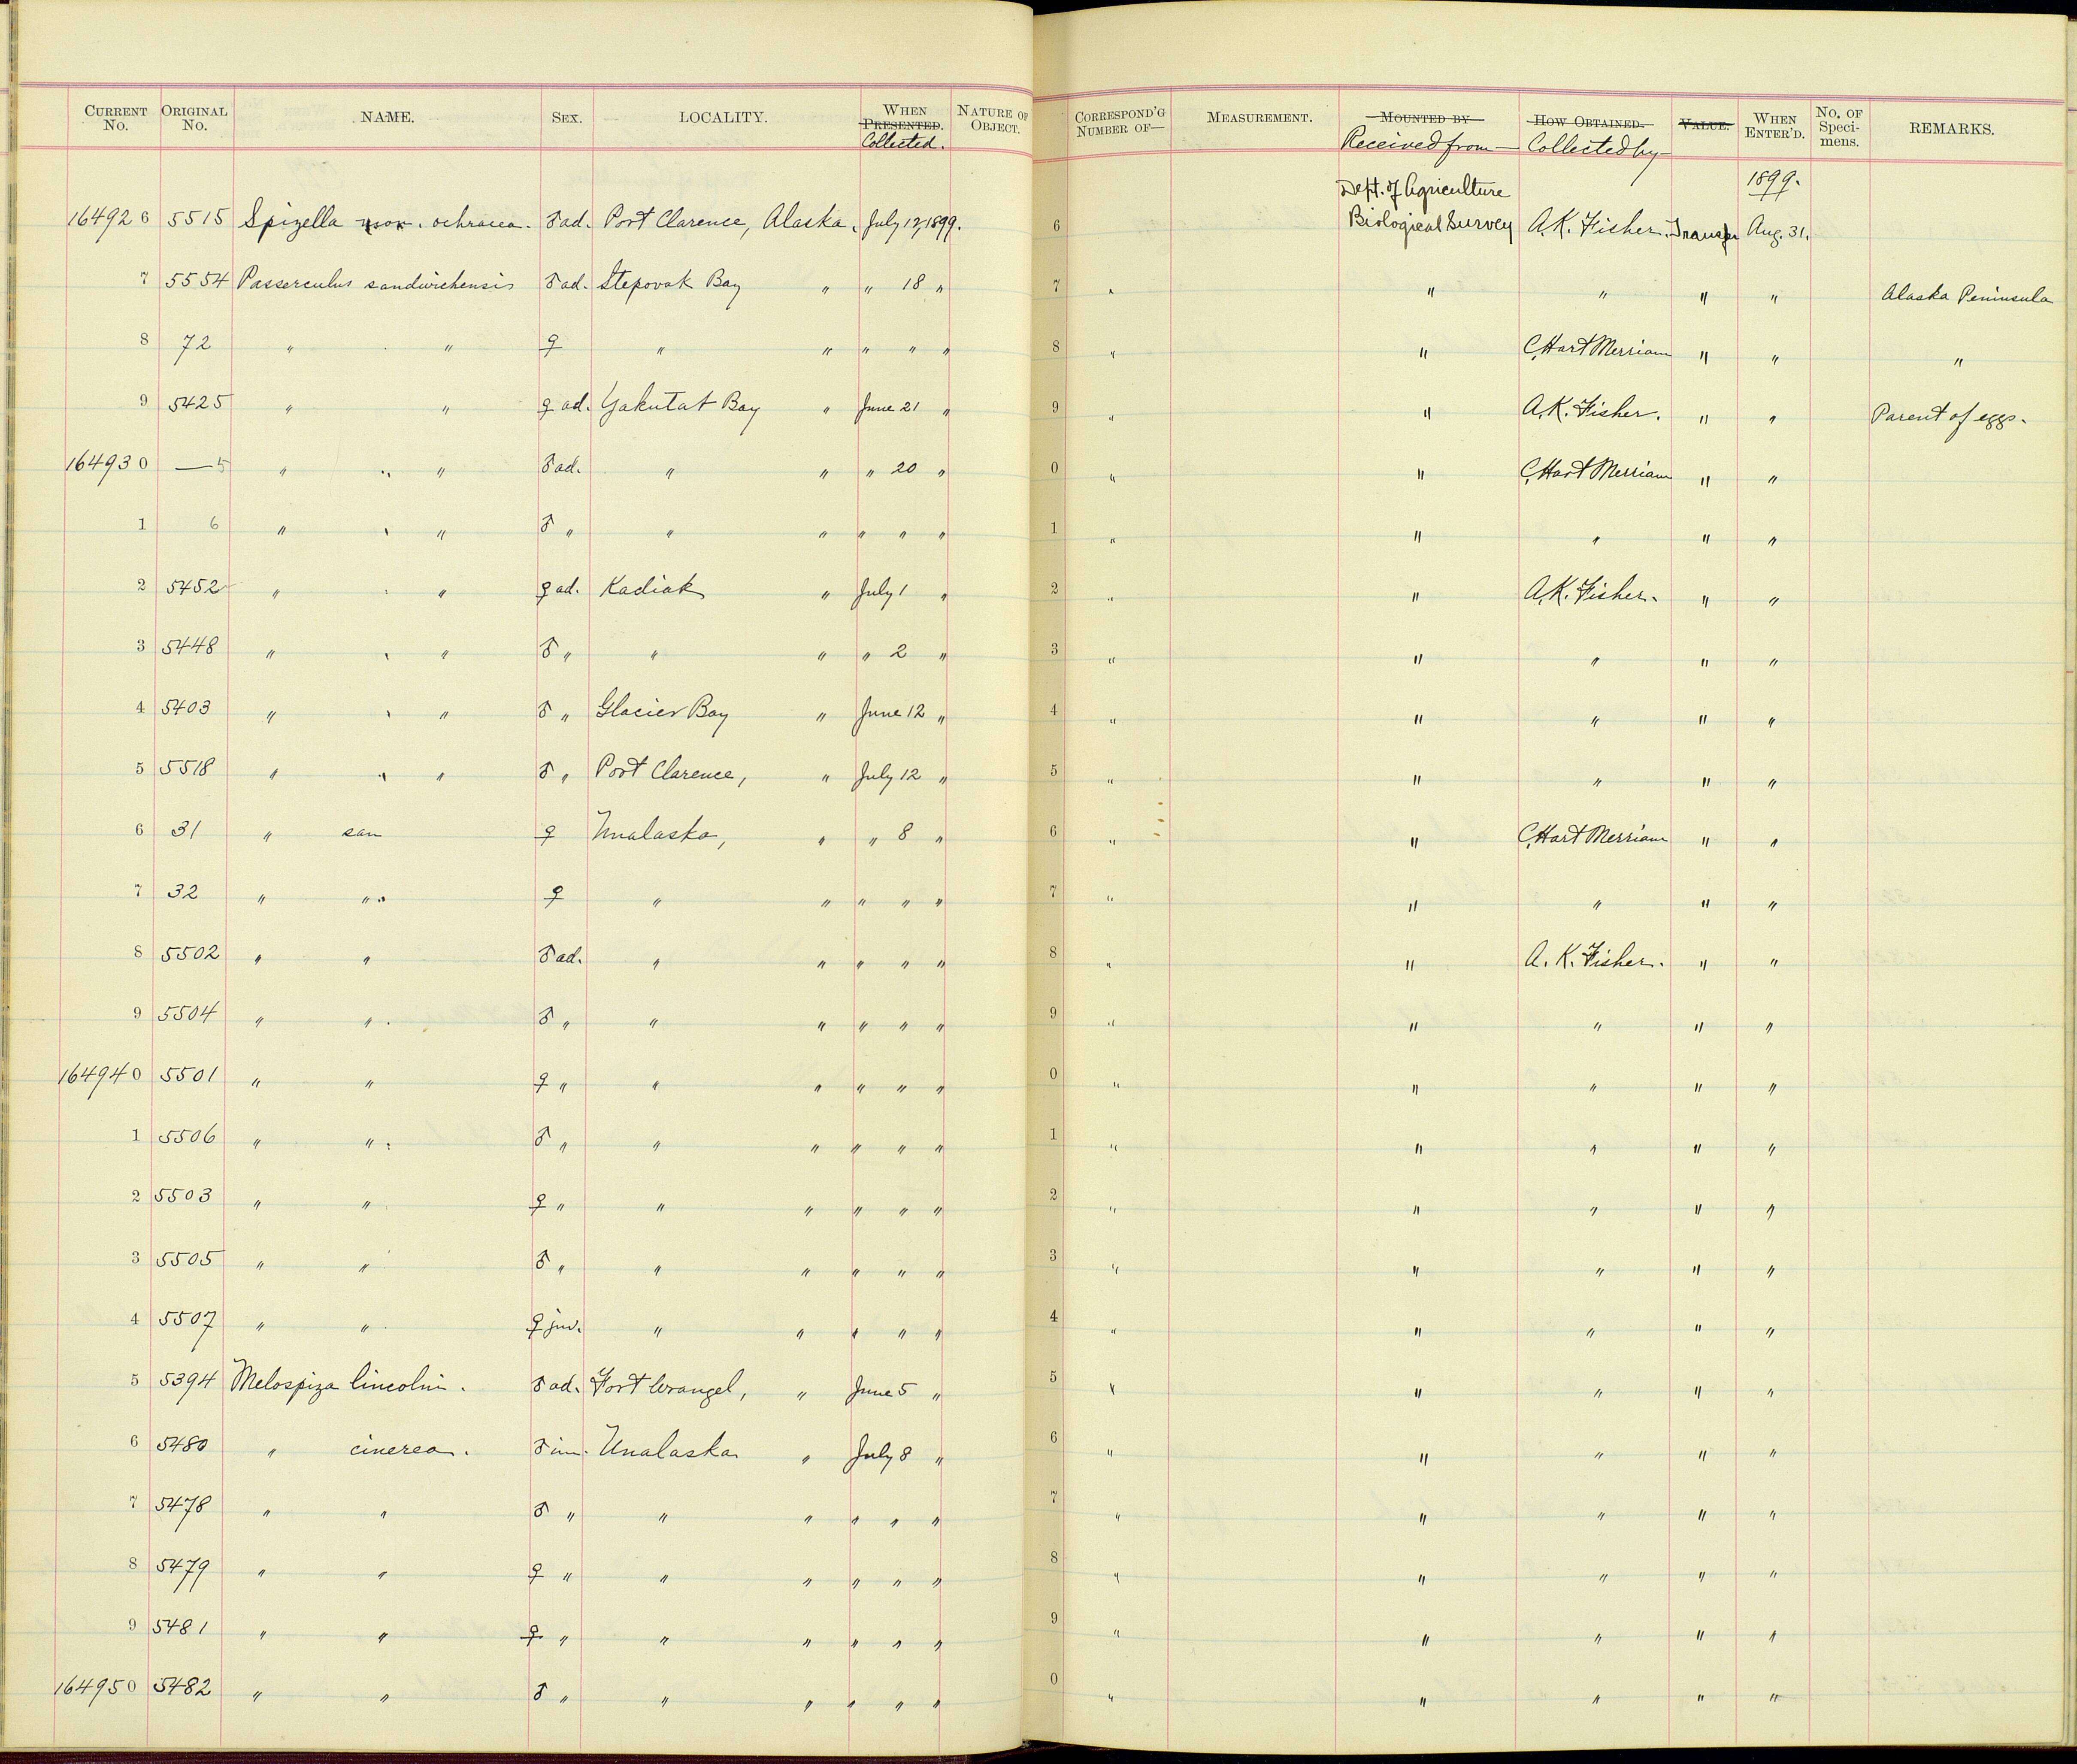 CURRENT No. ORIGINAL No. NAME. SEX. LOCALITY. WHEN PRESENTED. Collected. NATURE OF OBJECT. CORRESPOND'G NUMBER OF— MEASUREMENT. MOUNTED BY Received from— HOW OBTAINED. Collected by— VALUE. WHEN ENTER'D. No. OF Speci-mens. REMARKS.
Dept. of Agriculture 1899.
164926 5515 Spizella mon. ochracea. ♂ ad. Port Clarence, Alaska, July 12, 1899. 6 Biological Survey A.K. Fisher. Transfr Aug. 31.
7 5554 Passerculus sandwichensis ♂ ad. Stepovak Bay " " 18 " 7 " " " " " Alaska Peninsula
8 72 " " ♀ " " " " " 8 " " C. Hart Merriam " " "
9 5425 " " ♀ ad. Yakutat Bay " June 21 " 9 " " A.K. Fisher. " " Parent of eggs.
164930 — 5 " " ♂ ad. " " " 20 " 0 " " C. Hart Merriam " "
1 6 " " ♂ " " " " " " 1 " " " " "
2 5452 " " ♀ ad. Kadiak " July 1 " 2 " " A.K. Fisher. " "
3 5448 " " ♂ " " " " 2 " 3 " " " " "
4 5403 " " ♂ " Glacier Bay " June 12 " 4 " " " " "
5 5518 " " ♂ " Port Clarence, " July 12 " 5 " " " " "
6 31 " san ♀ Unalaska, " " 8 " 6 " " C. Hart Merriam " "
7 32 " " ♀ " " " " " 7 " " " " "
8 5502 " " ♂ ad. " " " " " 8 " " A. K. Fisher. " "
9 5504 " " ♂ " " " " " " 9 " " " " "
164940 5501 " " ♀ " " " " " " 0 " " " " "
1 5506 " " ♂ " " " " " " 1 " " " " "
2 5503 " " ♀ " " " " " " 2 " " " " "
3 5505 " " ♂ " " " " " " 3 " " " " "
4 5507 " " ♀ juv. " " " " " 4 " " " " "
5 5394 Melospiza lincolni. ♂ ad. Fort Wrangel, " June 5 " 5 " " " " "
6 5480 " cinerea. ♂ im. Unalaska " July 8 " 6 " " " " "
7 5478 " " ♂ " " " " " " 7 " " " " "
8 5479 " " ♀ " " " " " " 8 " " " " "
9 5481 " " ♀ " " " " " " 9 " " " " "
164950 5482 " " ♂ " " " " " " 0 " " " " "